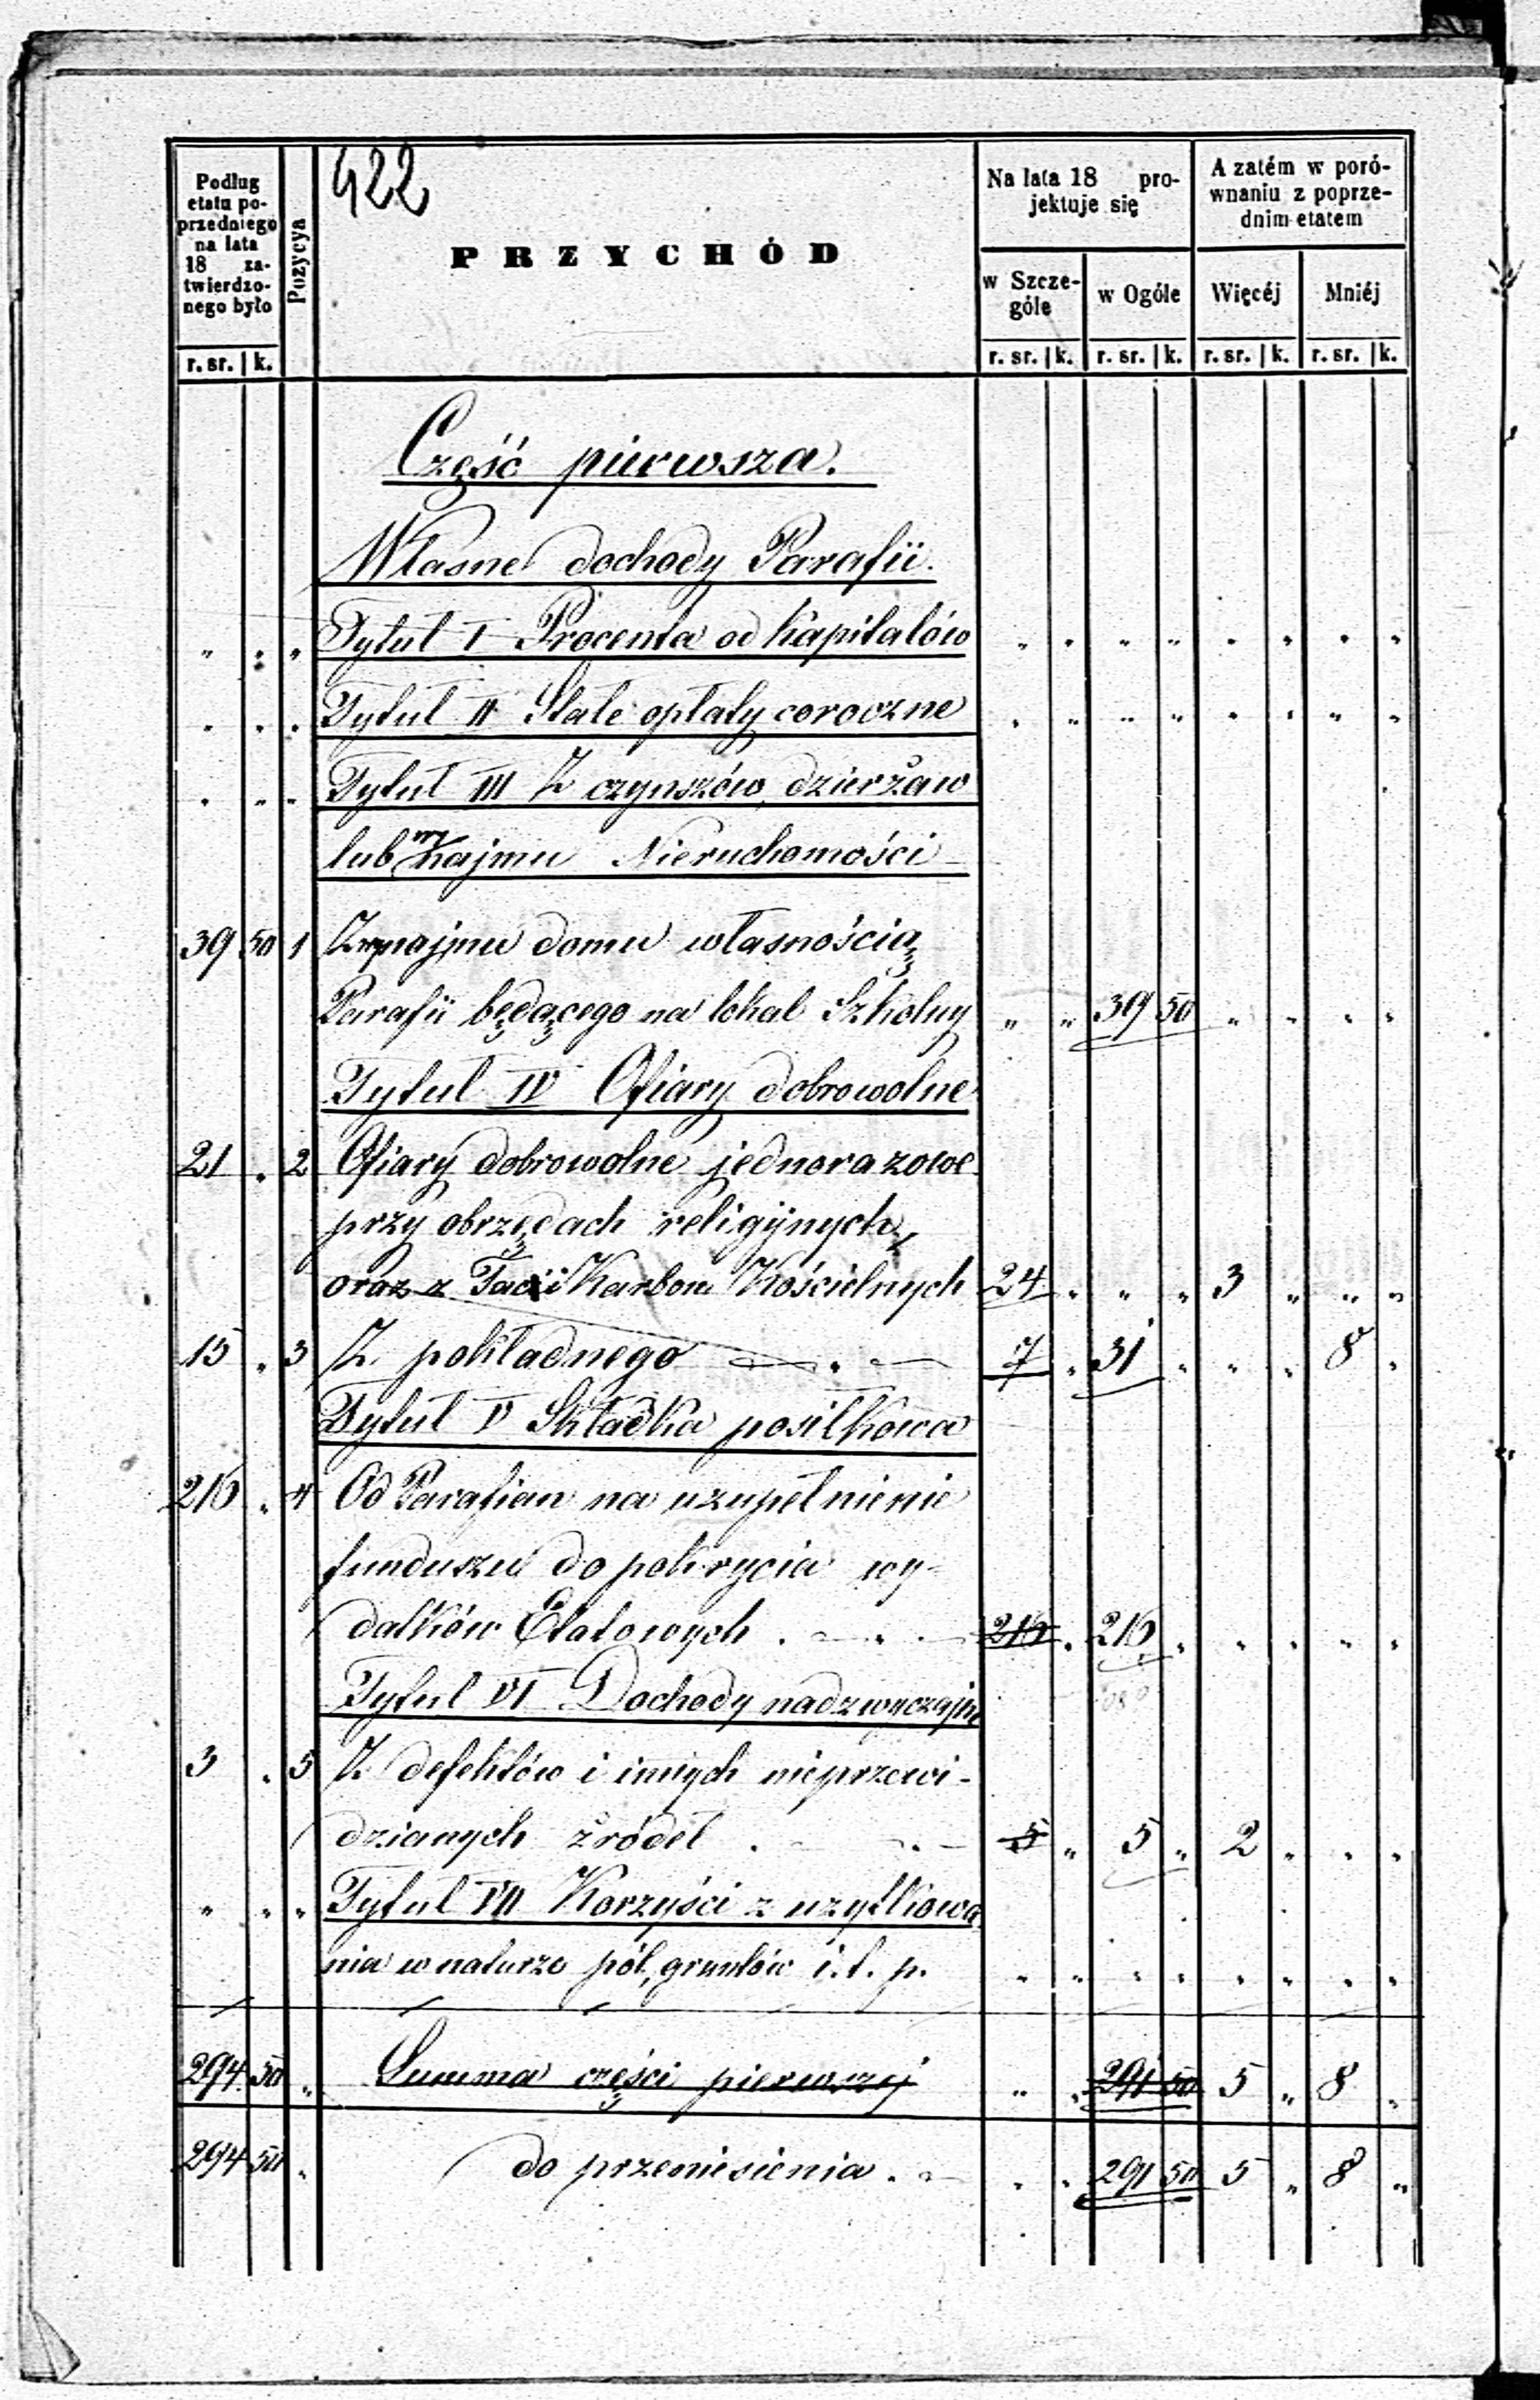 422
Podług etatu poprzedniego na lata 18 zatwierdzonego było
Pozycya
PRZYCHÓD
Na lata 18 projektuje się
A zatém w porównaniu z poprzednim etatem
w Szczególe
w Ogóle
Więcéj
Mniéj
r. sr. k. r. sr. k. r. sr. k. r. sr. k. r. sr. k.
Część pierwsza.
Własne dochody Parafii.
" " " Tytuł I Procenta od kapitałów " " " " " " " "
" " " Tytuł II Stałe opłaty coroczne " " " " " " " "
" " " Tytuł III Z czynszów, dzierżaw
lub wynajmu Nieruchomości
39 50 1 Z wynajmu domu własnością
Parafii będącego na lokal Szkolny " " 39 50 " " " "
Tytuł IV Ofiary dobrowolne
21 " 2 Ofiary dobrowolne jednorazowe
przy obrzędach religijnych,
oraz z Tac i Karbon Kościelnych 24 " " " 3 " " "
15 " 3 Z pokładnego 7 " 31 " " " 8 "
Tytuł V Składka posiłkowa
216 " 4 Od Parafian na uzupełnienie
funduszu do pokrycia wy-
datków Etatowych 216 " 216 " " " " "
Tytuł VI Dochody nadzwyczajne
3 " 5 Z defektów i innych nieprzewi-
dzianych źródeł 5 " 5 " 2 " " "
" " " Tytuł VII Korzyści z użytkowa
nia w naturze pól, gruntów i.t.p. " " " " " " " "
294 50 " Summa części pierwszej " " 291 50 5 " 8 "
294 50 " do przeniesienia " " 291 50 5 " 8 "